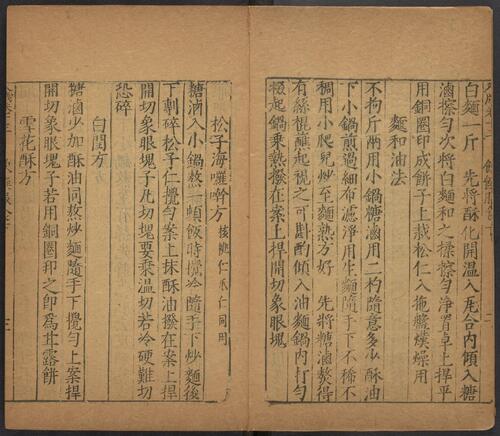 白麵一斤　先將酥化開溫入瓦合內傾入糖
滷擦勻次將白麵和之揉擦勻淨置卓上捍平
用銅圈印成餅子上栽松仁入拖盤熯燥用
麵和油法
不拘斤兩用小鍋糖滷用二杓隨意多少酥油
下小鍋煎過細布濾淨用生麵隨手下不稀不
稠用小爬兒炒至麵熟方好　先將糖滷熬得
有絲棍蘸起視之可斟酌傾入油麵鍋內打勻
掇起鍋乘熱撥在案上捍開切象眼塊
松子海囉𠹌方　核桃仁瓜仁同用
糖滷入小鍋熬一頓飯時攪冷隨手下炒麵後
下剁碎松子仁攪勻案上抹酥油撥在案上捍
開切象眼塊子凡切塊要乘溫切若冷硬難切
恐碎
白閏方
糖滷少加酥油同熬炒麵隨手下攪勻上案捍
開切象眼塊子若用銅圈印之即爲甘露餅
雪花酥方